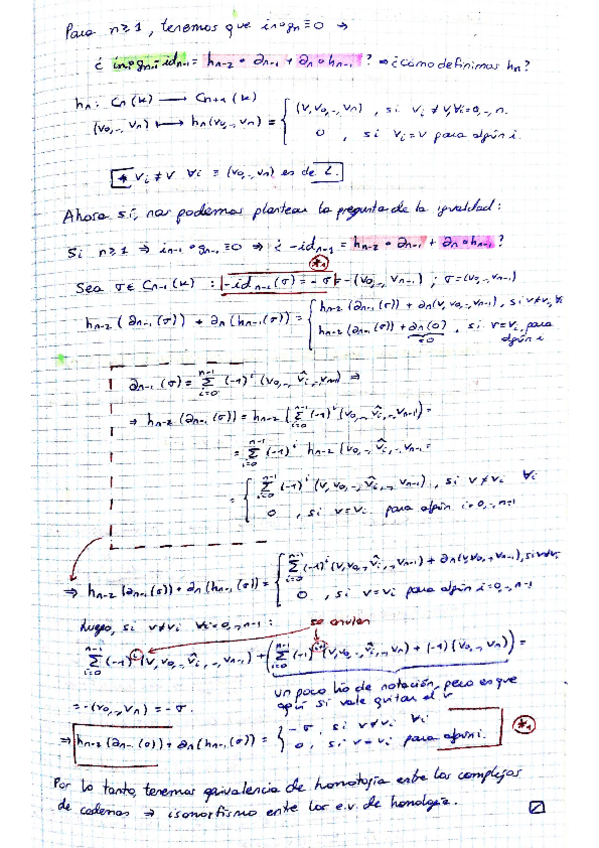 Para n≥1, tenemos que in∘gn≡0 →
¿ in-1∘gn-1 - idn-1 = hn-2 ∘ ∂n-1 + ∂n ∘ hn-1 ? ⇒ ¿cómo definimos hn?
hn: Cn(K) ⟶ Cn+1(K)
(v0,..,vn) ⟼ hn(v0,..,vn) = { (v,v0,..,vn) , si vi≠v, ∀i=0,..,n.
0 , si vi=v para algún i.
* vi≠v ∀i = (v0,..,vn) es de L.
Ahora sí, nos podemos plantear la pregunta de la igualdad:
Si n≥1 ⇒ in-1∘gn-1≡0 ⇒ ¿ -idn-1 = hn-2 ∘ ∂n-1 + ∂n∘hn-1 ?
*1
Sea σ∈ Cn-1(K) : -idn-1(σ) = -σ = -(v0,..,vn-1) ; σ=(v0,..,vn-1)
hn-2(∂n-1(σ)) + ∂n(hn-1(σ)) = { hn-2(∂n-1(σ)) + ∂n(v,v0,..,vn-1) , si v≠vi ∀i
hn-2(∂n-1(σ)) + ∂n(0) , si v=vi, para algún i
=0
∂n-1(σ) = Σ i=0 n-1 (-1)^i (v0,..,v̂i,..,vn-1) ⇒
⇒ hn-2(∂n-1(σ)) = hn-2(Σ i=0 n-1 (-1)^i (v0,..,v̂i,..,vn-1)) =
= Σ i=0 n-1 (-1)^i hn-2(v0,..,v̂i,..,vn-1 =
= { Σ i=0 n-1 (-1)^i (v,v0,..,v̂i,..,vn-1) , si v≠vi ∀i
0 , si v=vi para algún i=0,..,n-1
⇒ hn-2(∂n-1(σ)) + ∂n(hn-1(σ)) = { Σ i=0 n-1 (-1)^i (v,v0,..,v̂i,..,vn-1) + ∂n(v,v0,..,vn-1), si v≠vi
0 , si v=vi para algún i=0,..,n-1
Luego, si v≠vi ∀i=0,..,n-1 : se anulan
Σ i=0 n-1 (-1)^i (v,v0,..,v̂i,..,vn-1) + (Σ i=0 n-1 (-1)^i+1 (v,v0,..,v̂i,..,vn) + (-1)(v0,..,vn)) =
un poco lío de notación, pero es que
aquí sí vale quitar el v
= -(v0,..,vn) = -σ.
⇒ hn-2(∂n-1(σ)) + ∂n(hn-1(σ)) = { -σ, si v≠vi ∀i
0, si v=vi para algún i. *1
Por lo tanto, tenemos equivalencia de homotopía entre los complejos
de cadenas ⇒ isomorfismo entre los e.v. de homología.